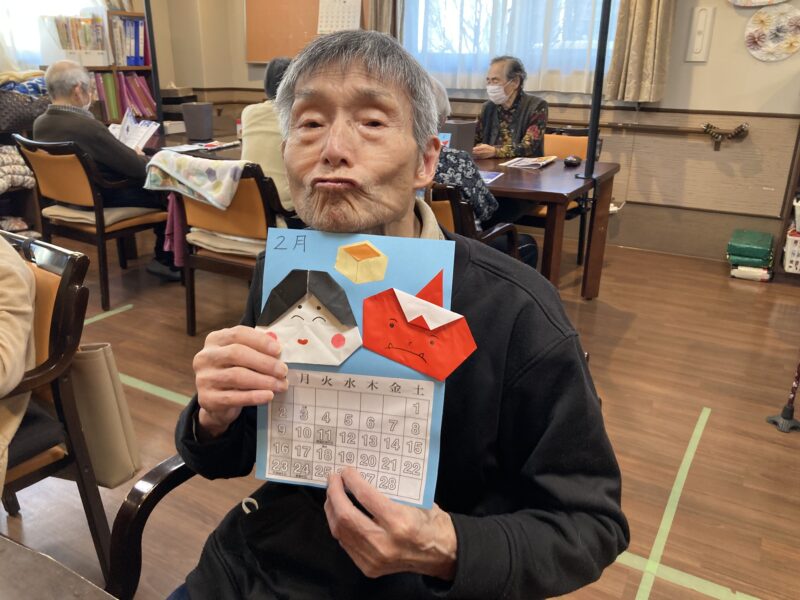 2月
月 火 水 木 金 土
1
2 3 4 5 6 7 8
9 10 11 12 13 14 15
16 17 18 19 20 21 22
23 24 25 27 28